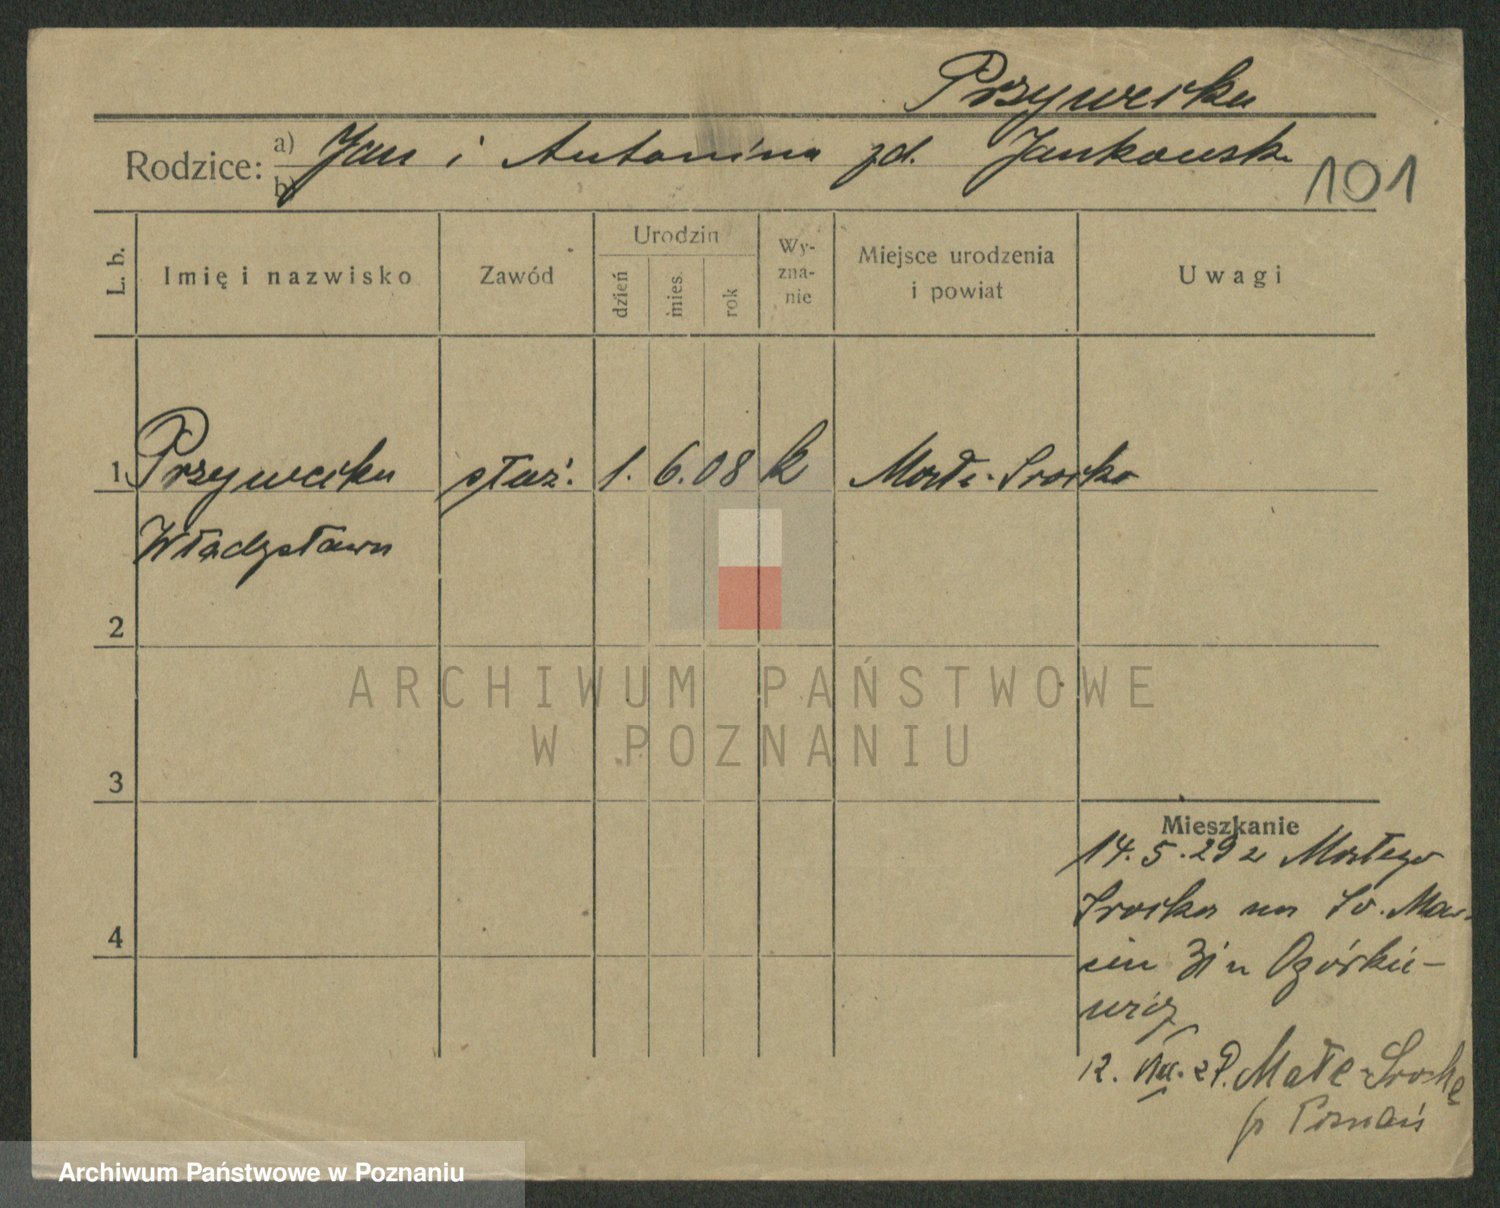 Przywecka
Rodzice: a) Jan i Antonina zd. Jankowsk.
b)
101
L. b.
Imię i nazwisko
Zawód
Urodzin
dzień
mies.
rok
Wy-
zna-
nie
Miejsce urodzenia
i powiat
Uwagi
1. Przywecka służ. 1. 6. 08 k Małe-Srocko
Władysława
2
3
4
ARCHIWUM PAŃSTWOWE
W POZNANIU
Mieszkanie
14. 5. 29 z Małego
Srocka na Św. Mar-
cin 31 u Ogórkie-
wicz
12. VII. 29. Małe-Srocke
p Poznań
Archiwum Państwowe w Poznaniu